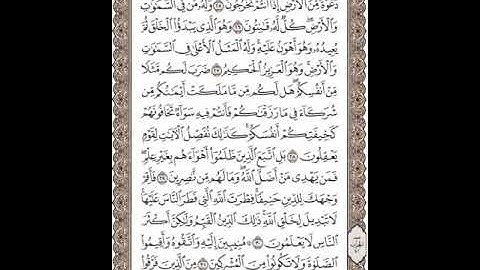 دَعْوَةً مِّنَ ٱلْأَرْضِ إِذَآ أَنتُمْ تَخْرُجُونَ ٢٥ وَلَهُۥ مَن فِى ٱلسَّمَٰوَٰتِ
وَٱلْأَرْضِ ۖ كُلٌّ لَّهُۥ قَٰنِتُونَ ٢٦ وَهُوَ ٱلَّذِى يَبْدَؤُا۟ ٱلْخَلْقَ ثُمَّ
يُعِيدُهُۥ وَهُوَ أَهْوَنُ عَلَيْهِ ۚ وَلَهُ ٱلْمَثَلُ ٱلْأَعْلَىٰ فِى ٱلسَّمَٰوَٰتِ
وَٱلْأَرْضِ ۚ وَهُوَ ٱلْعَزِيزُ ٱلْحَكِيمُ ٢٧ ضَرَبَ لَكُم مَّثَلًا
مِّنْ أَنفُسِكُمْ ۖ هَل لَّكُم مِّن مَّا مَلَكَتْ أَيْمَٰنُكُم مِّن
شُرَكَآءَ فِى مَا رَزَقْنَٰكُمْ فَأَنتُمْ فِيهِ سَوَآءٌ تَخَافُونَهُمْ
كَخِيفَتِكُمْ أَنفُسَكُمْ ۚ كَذَٰلِكَ نُفَصِّلُ ٱلْءَايَٰتِ لِقَوْمٍ
يَعْقِلُونَ ٢٨ بَلِ ٱتَّبَعَ ٱلَّذِينَ ظَلَمُوٓا۟ أَهْوَآءَهُم بِغَيْرِ عِلْمٍ ۖ
فَمَن يَهْدِى مَنْ أَضَلَّ ٱللَّهُ ۖ وَمَا لَهُم مِّن نَّٰصِرِينَ ٢٩ فَأَقِمْ
وَجْهَكَ لِلدِّينِ حَنِيفًا ۚ فِطْرَتَ ٱللَّهِ ٱلَّتِى فَطَرَ ٱلنَّاسَ عَلَيْهَا ۚ
لَا تَبْدِيلَ لِخَلْقِ ٱللَّهِ ۚ ذَٰلِكَ ٱلدِّينُ ٱلْقَيِّمُ وَلَٰكِنَّ أَكْثَرَ
ٱلنَّاسِ لَا يَعْلَمُونَ ٣٠ ۞ مُنِيبِينَ إِلَيْهِ وَٱتَّقُوهُ وَأَقِيمُوا۟
ٱلصَّلَوٰةَ وَلَا تَكُونُوا۟ مِنَ ٱلْمُشْرِكِينَ ٣١ مِنَ ٱلَّذِينَ فَرَّقُوا۟